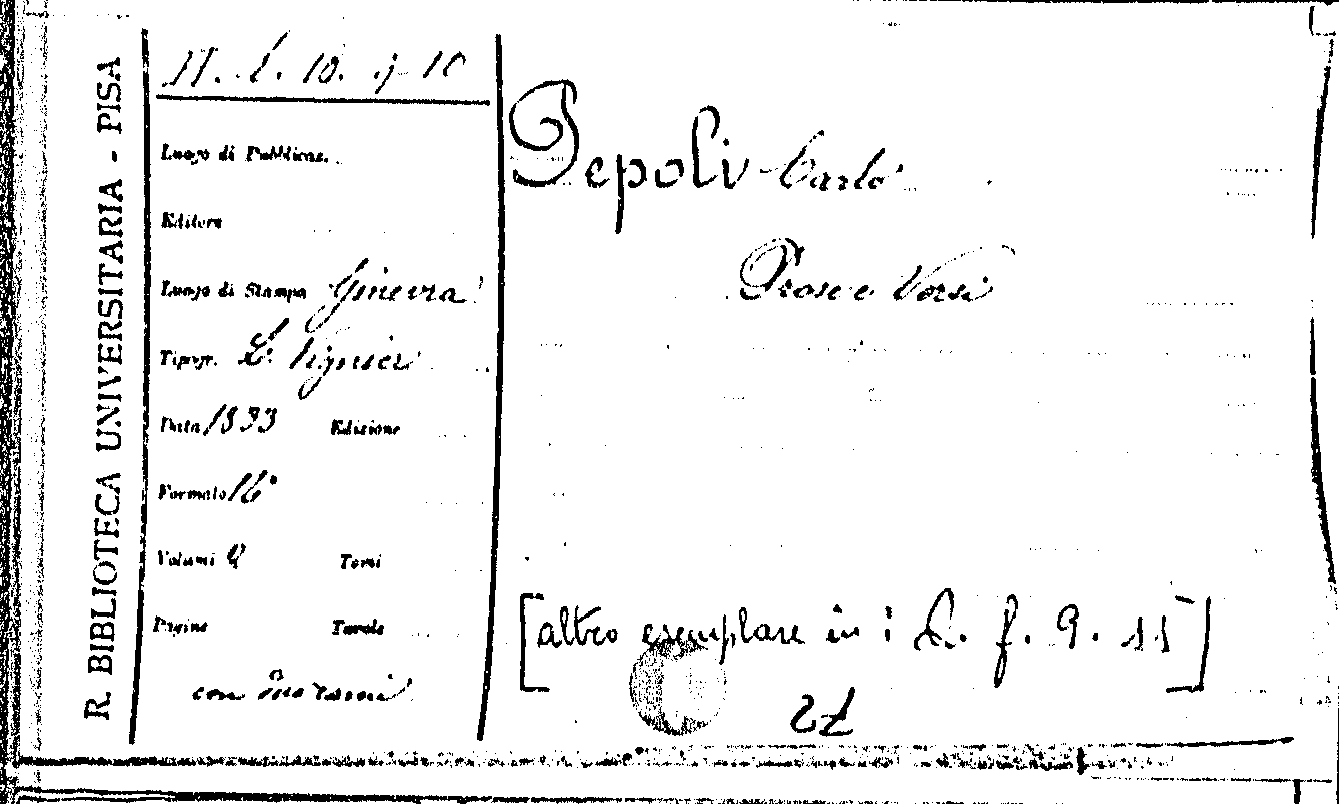 R. BIBLIOTECA UNIVERSITARIA - PISA
Luogo di Pubblicaz.
Editore
Luogo di Stampa Ginevra
Tipogr. L. Vignier
Data 1833 Edizione
Formato 16°
Volumi 2 Tomi
Pagine Tavole
con
Pepoli Carlo
Prose e Versi
[altro esemplare in: f. 9. 11]